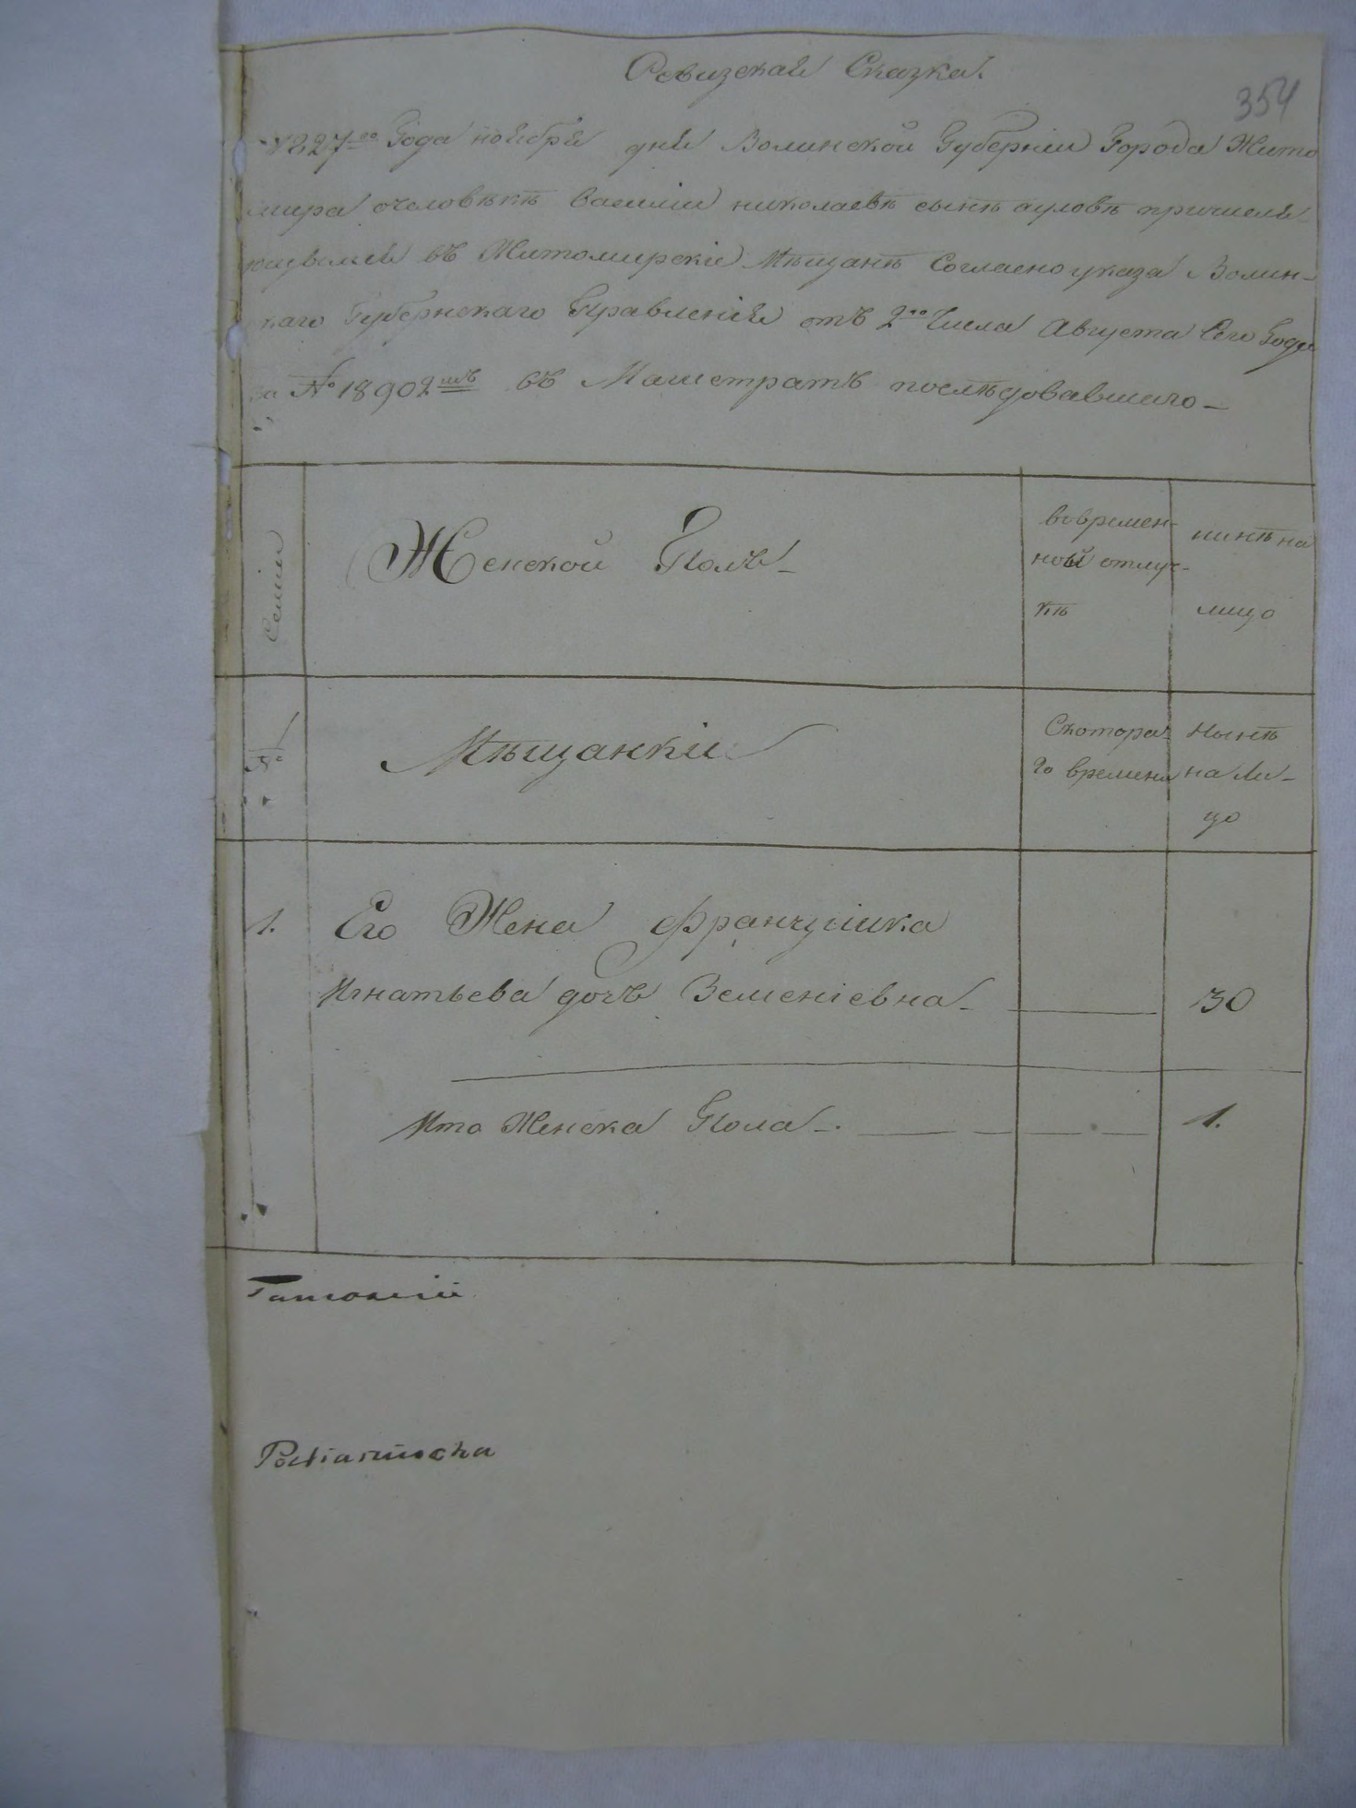 Ревизскай Сказка.
354
1827го Года ноебря дня Волинской Губернии Города Жито
мира очоловѣкѣ Василии николаевѣ сынѣ
въ Житомирские Мѣщанѣ Согласно указа Волин-
скаго Губернскаго Правления отъ 2го Числа Августа Сего Года
за № 18902мъ въ Магистратъ последовавшаго -
Семии
Женской Полъ -
вовремен-
ной отлуч-
кѣ
нинѣ на
лицо
№
Мѣщанкии
Скотора-
го времини
Нынѣ
на Ли-
цо
1. Его Жена Францишка
Игнатьева дочь Земениевна - 30
Ито Женска Пола - . 1.